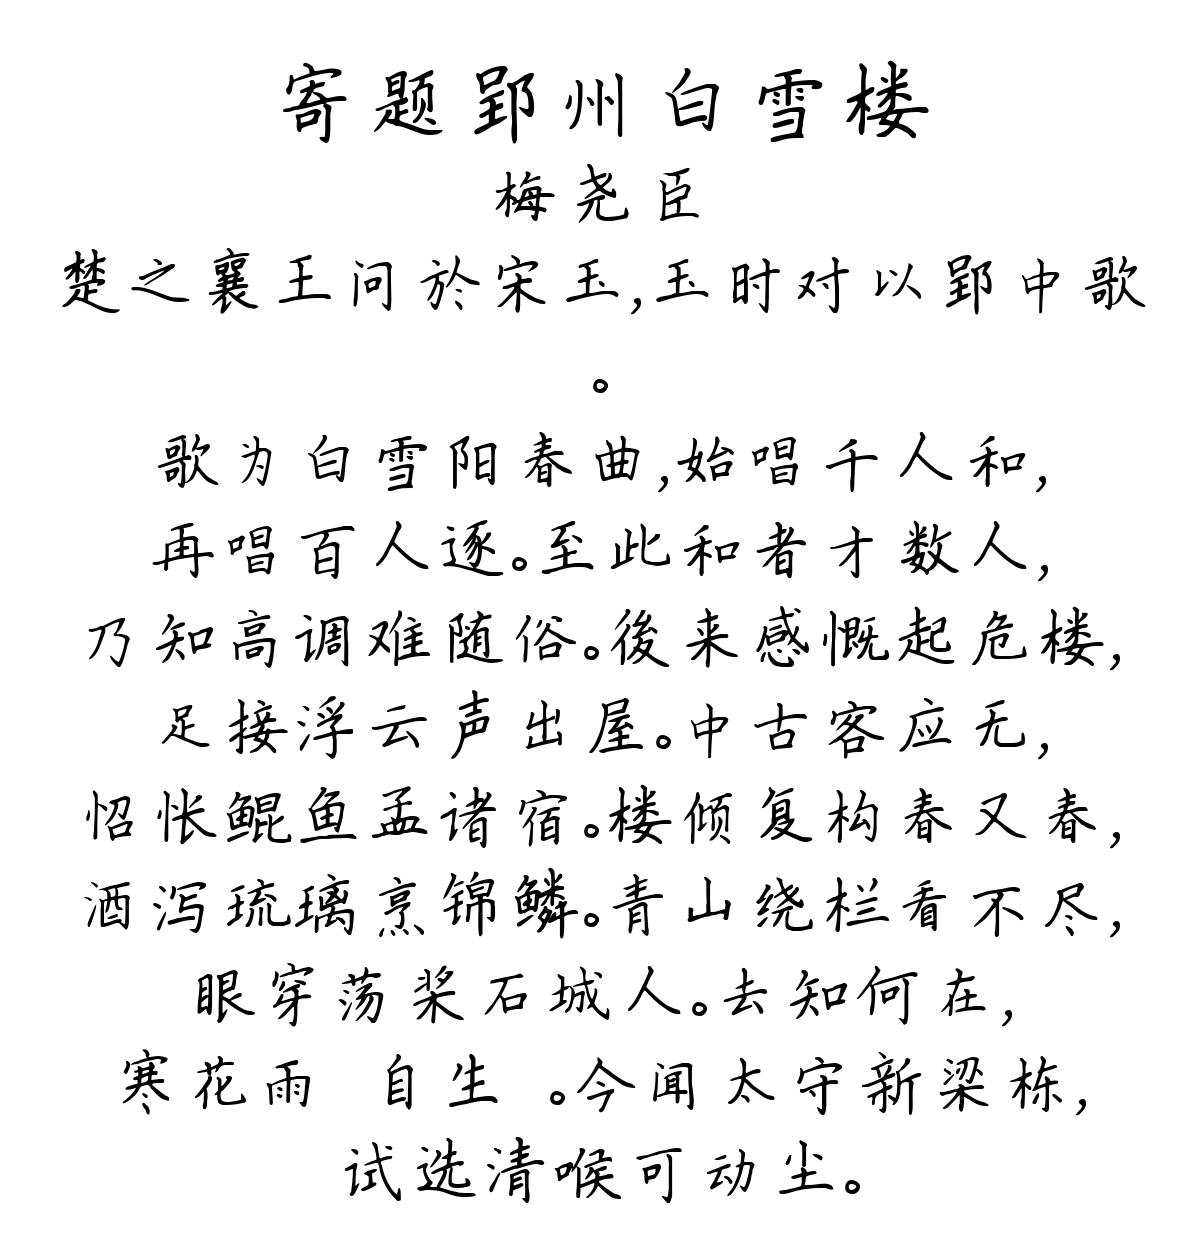 寄题郢州白雪楼
梅尧臣
楚之襄王问於宋玉,玉时对以郢中歌
。
歌为白雪阳春曲,始唱千人和,
再唱百人逐。至此和者才数人,
乃知高调难随俗。後来感慨起危楼,
足接浮云声出屋。中古客应无,
怊怅鲲鱼孟诸宿。楼倾复构春又春,
酒泻琉璃烹锦鳞。青山绕栏看不尽,
眼穿荡桨石城人。去知何在,
寒花雨 自生 。今闻太守新梁栋,
试选清喉可动尘。